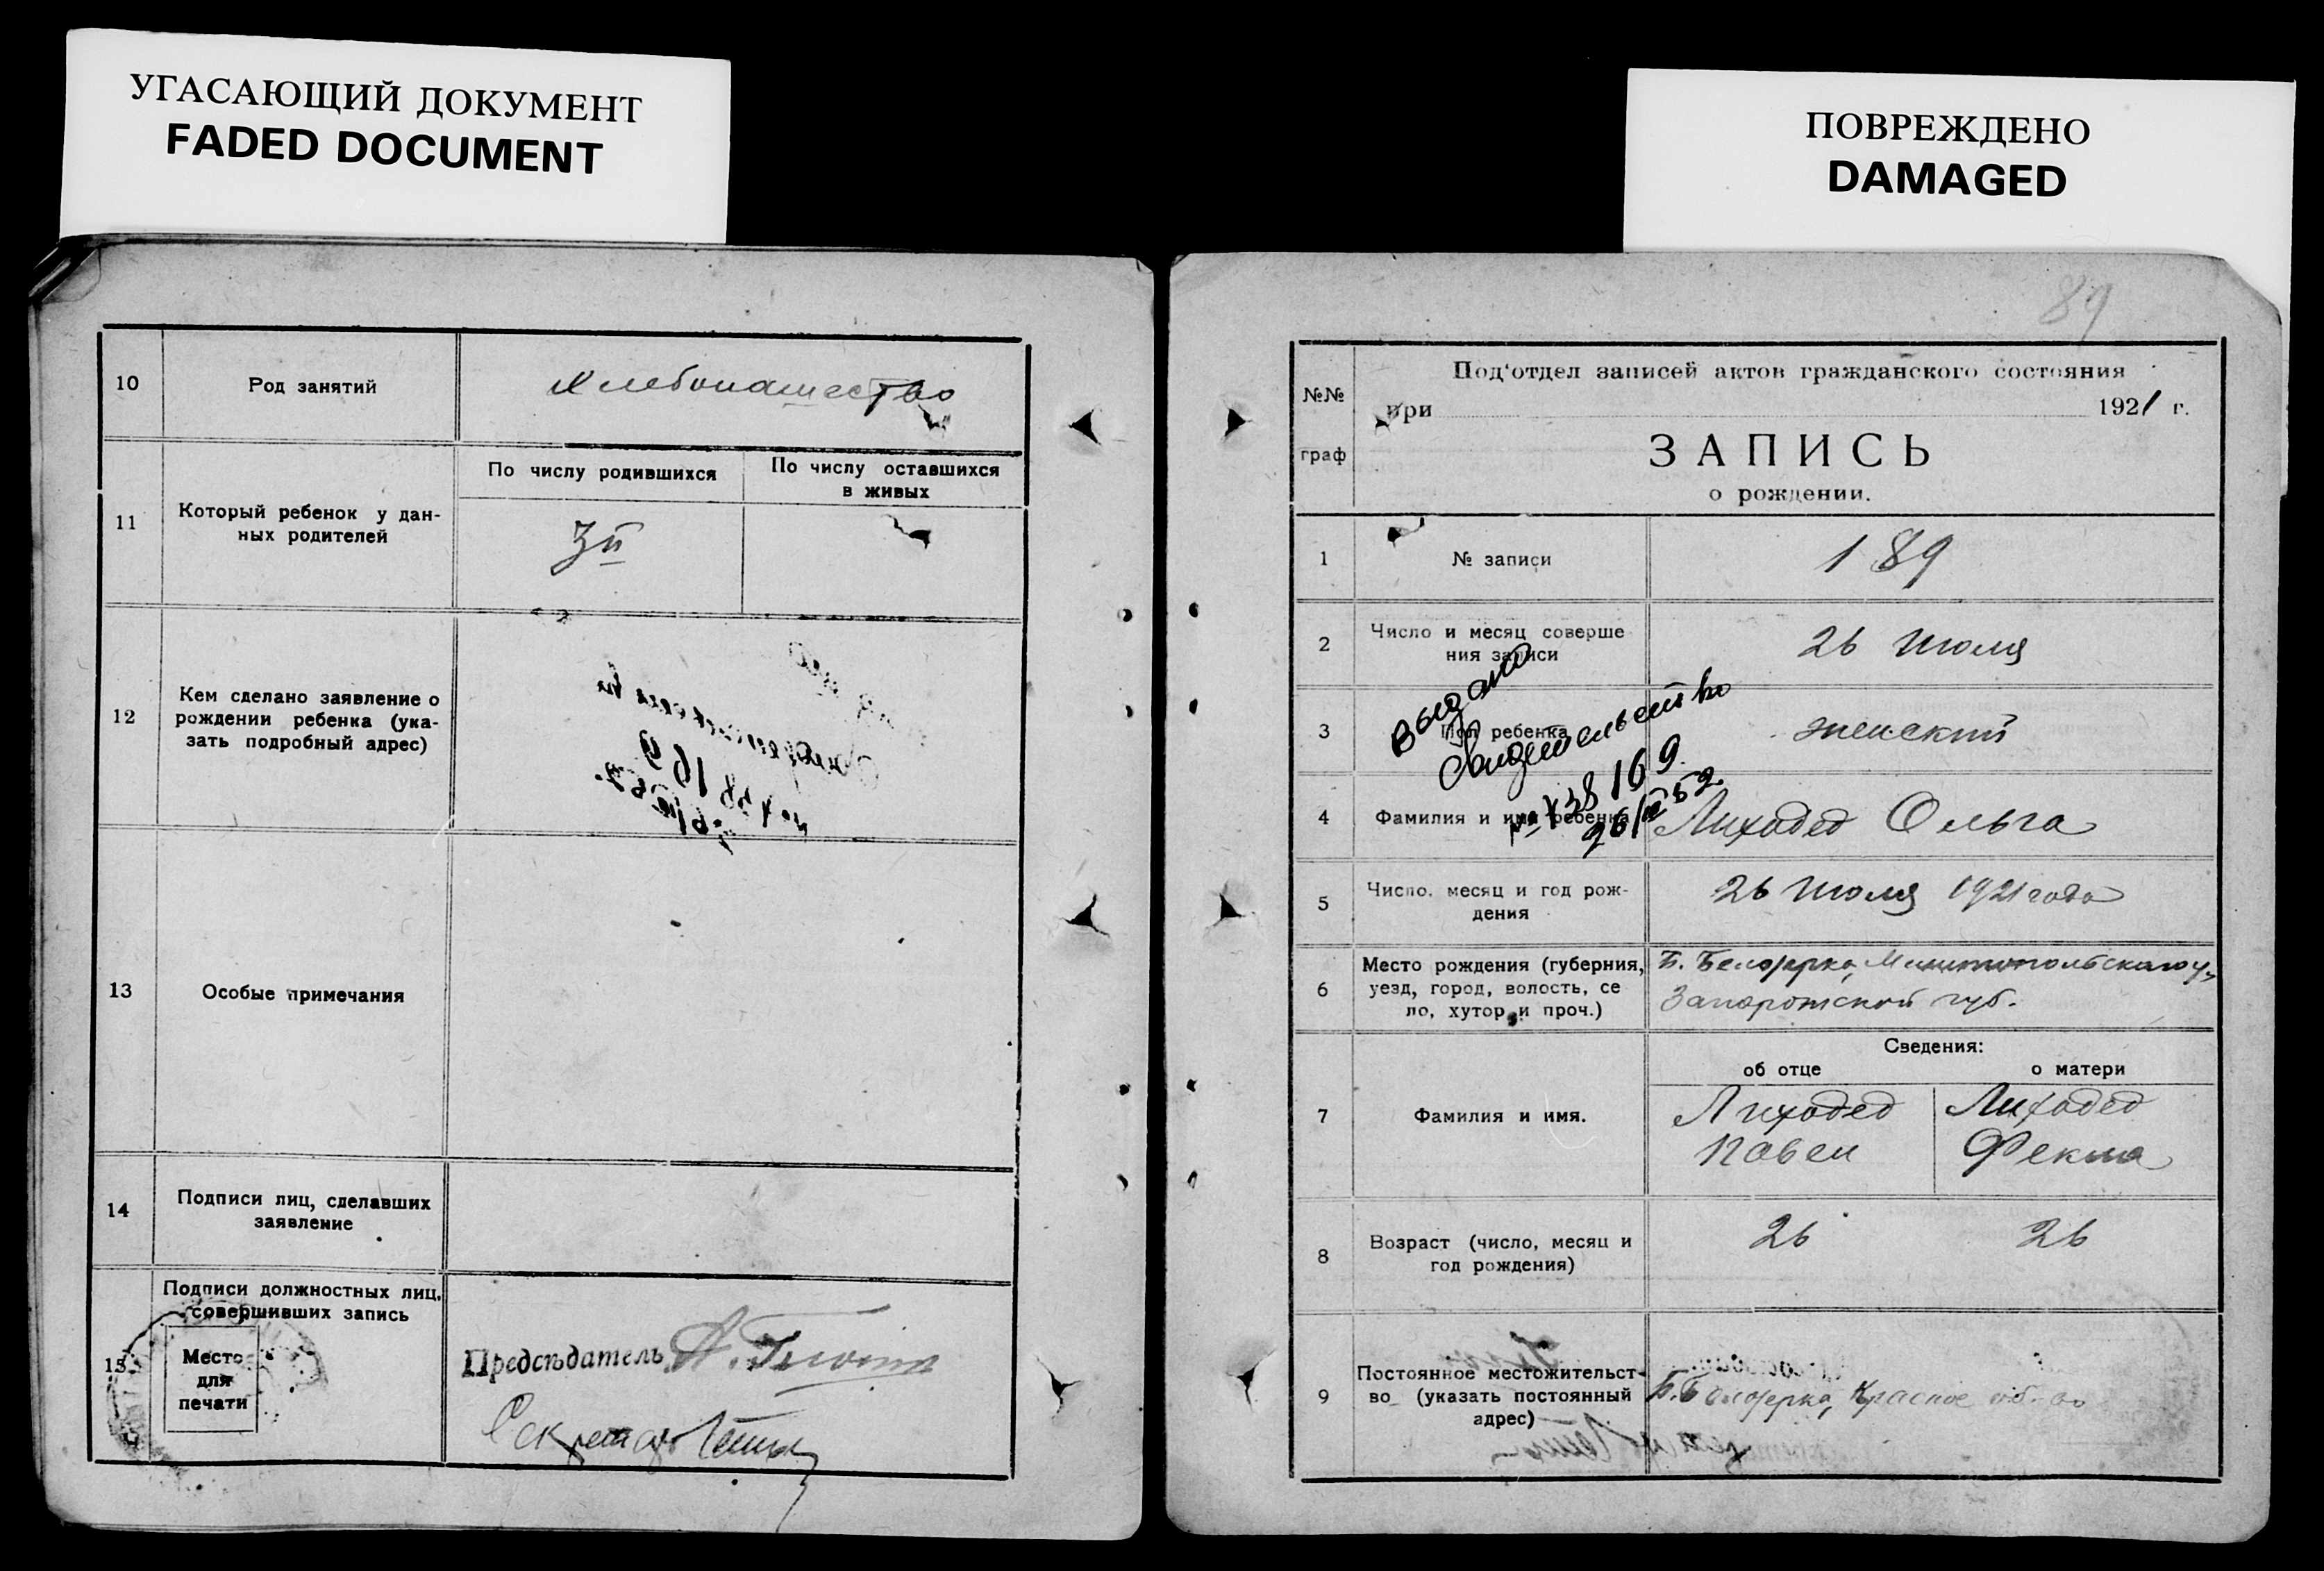 УГАСАЮЩИЙ ДОКУМЕНТ
FADED DOCUMENT
ПОВРЕЖДЕНО
DAMAGED
10
Род занятий
Хлебопашество
11
Который ребенок у дан-
ных родителей
По числу родившихся
По числу оставшихся
в живых
3й
12
Кем сделано заявление о
рождении ребенка (ука-
зать подробный адрес)
13
Особые примечания
14
Подписи лиц, сделавших
заявление
15
Подписи должностных лиц,
совершивших запись
Место
для
печати
Предсѣдатель
Секретарь
89
№№
граф
Под'отдел записей актов гражданского состояния
при 1921 г.
ЗАПИСЬ
о рождении.
1
№ записи
189
2
Число и месяц соверше
ния записи
26 Июля
3
Пол ребенка
женский
Выдано
Свидетельство
26/III 52
4
Фамилия и имя ребенка
Лиходед Ольга
5
Число, месяц и год рож-
дения
26 Июля 1921 года
6
Место рождения (губерния,
уезд, город, волость, се
ло, хутор и проч.)
Б. Белозерка, Мелитопольского у,
Запорожской губ.
Сведения:
об отце
о матери
7
Фамилия и имя.
Лиходед
Павел
Лиходед
Фекла
8
Возраст (число, месяц и
год рождения)
26
26
9
Постоянное местожительст-
во (указать постоянный
адрес)
Б. Белозерка, Красное об-во